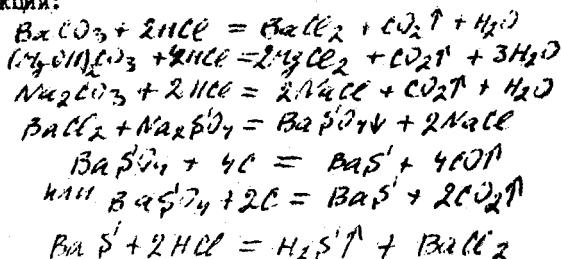 кции:
BaCO3 + 2HCl = BaCl2 + CO2↑ + H2O
(MgOH)2CO3 + 4HCl = 2MgCl2 + CO2↑ + 3H2O
Na2CO3 + 2HCl = 2NaCl + CO2↑ + H2O
BaCl2 + Na2SO4 = BaSO4↓ + 2NaCl
BaSO4 + 4C = BaS + 4CO↑
или BaSO4 + 2C = BaS + 2CO2↑
BaS + 2HCl = H2S↑ + BaCl2